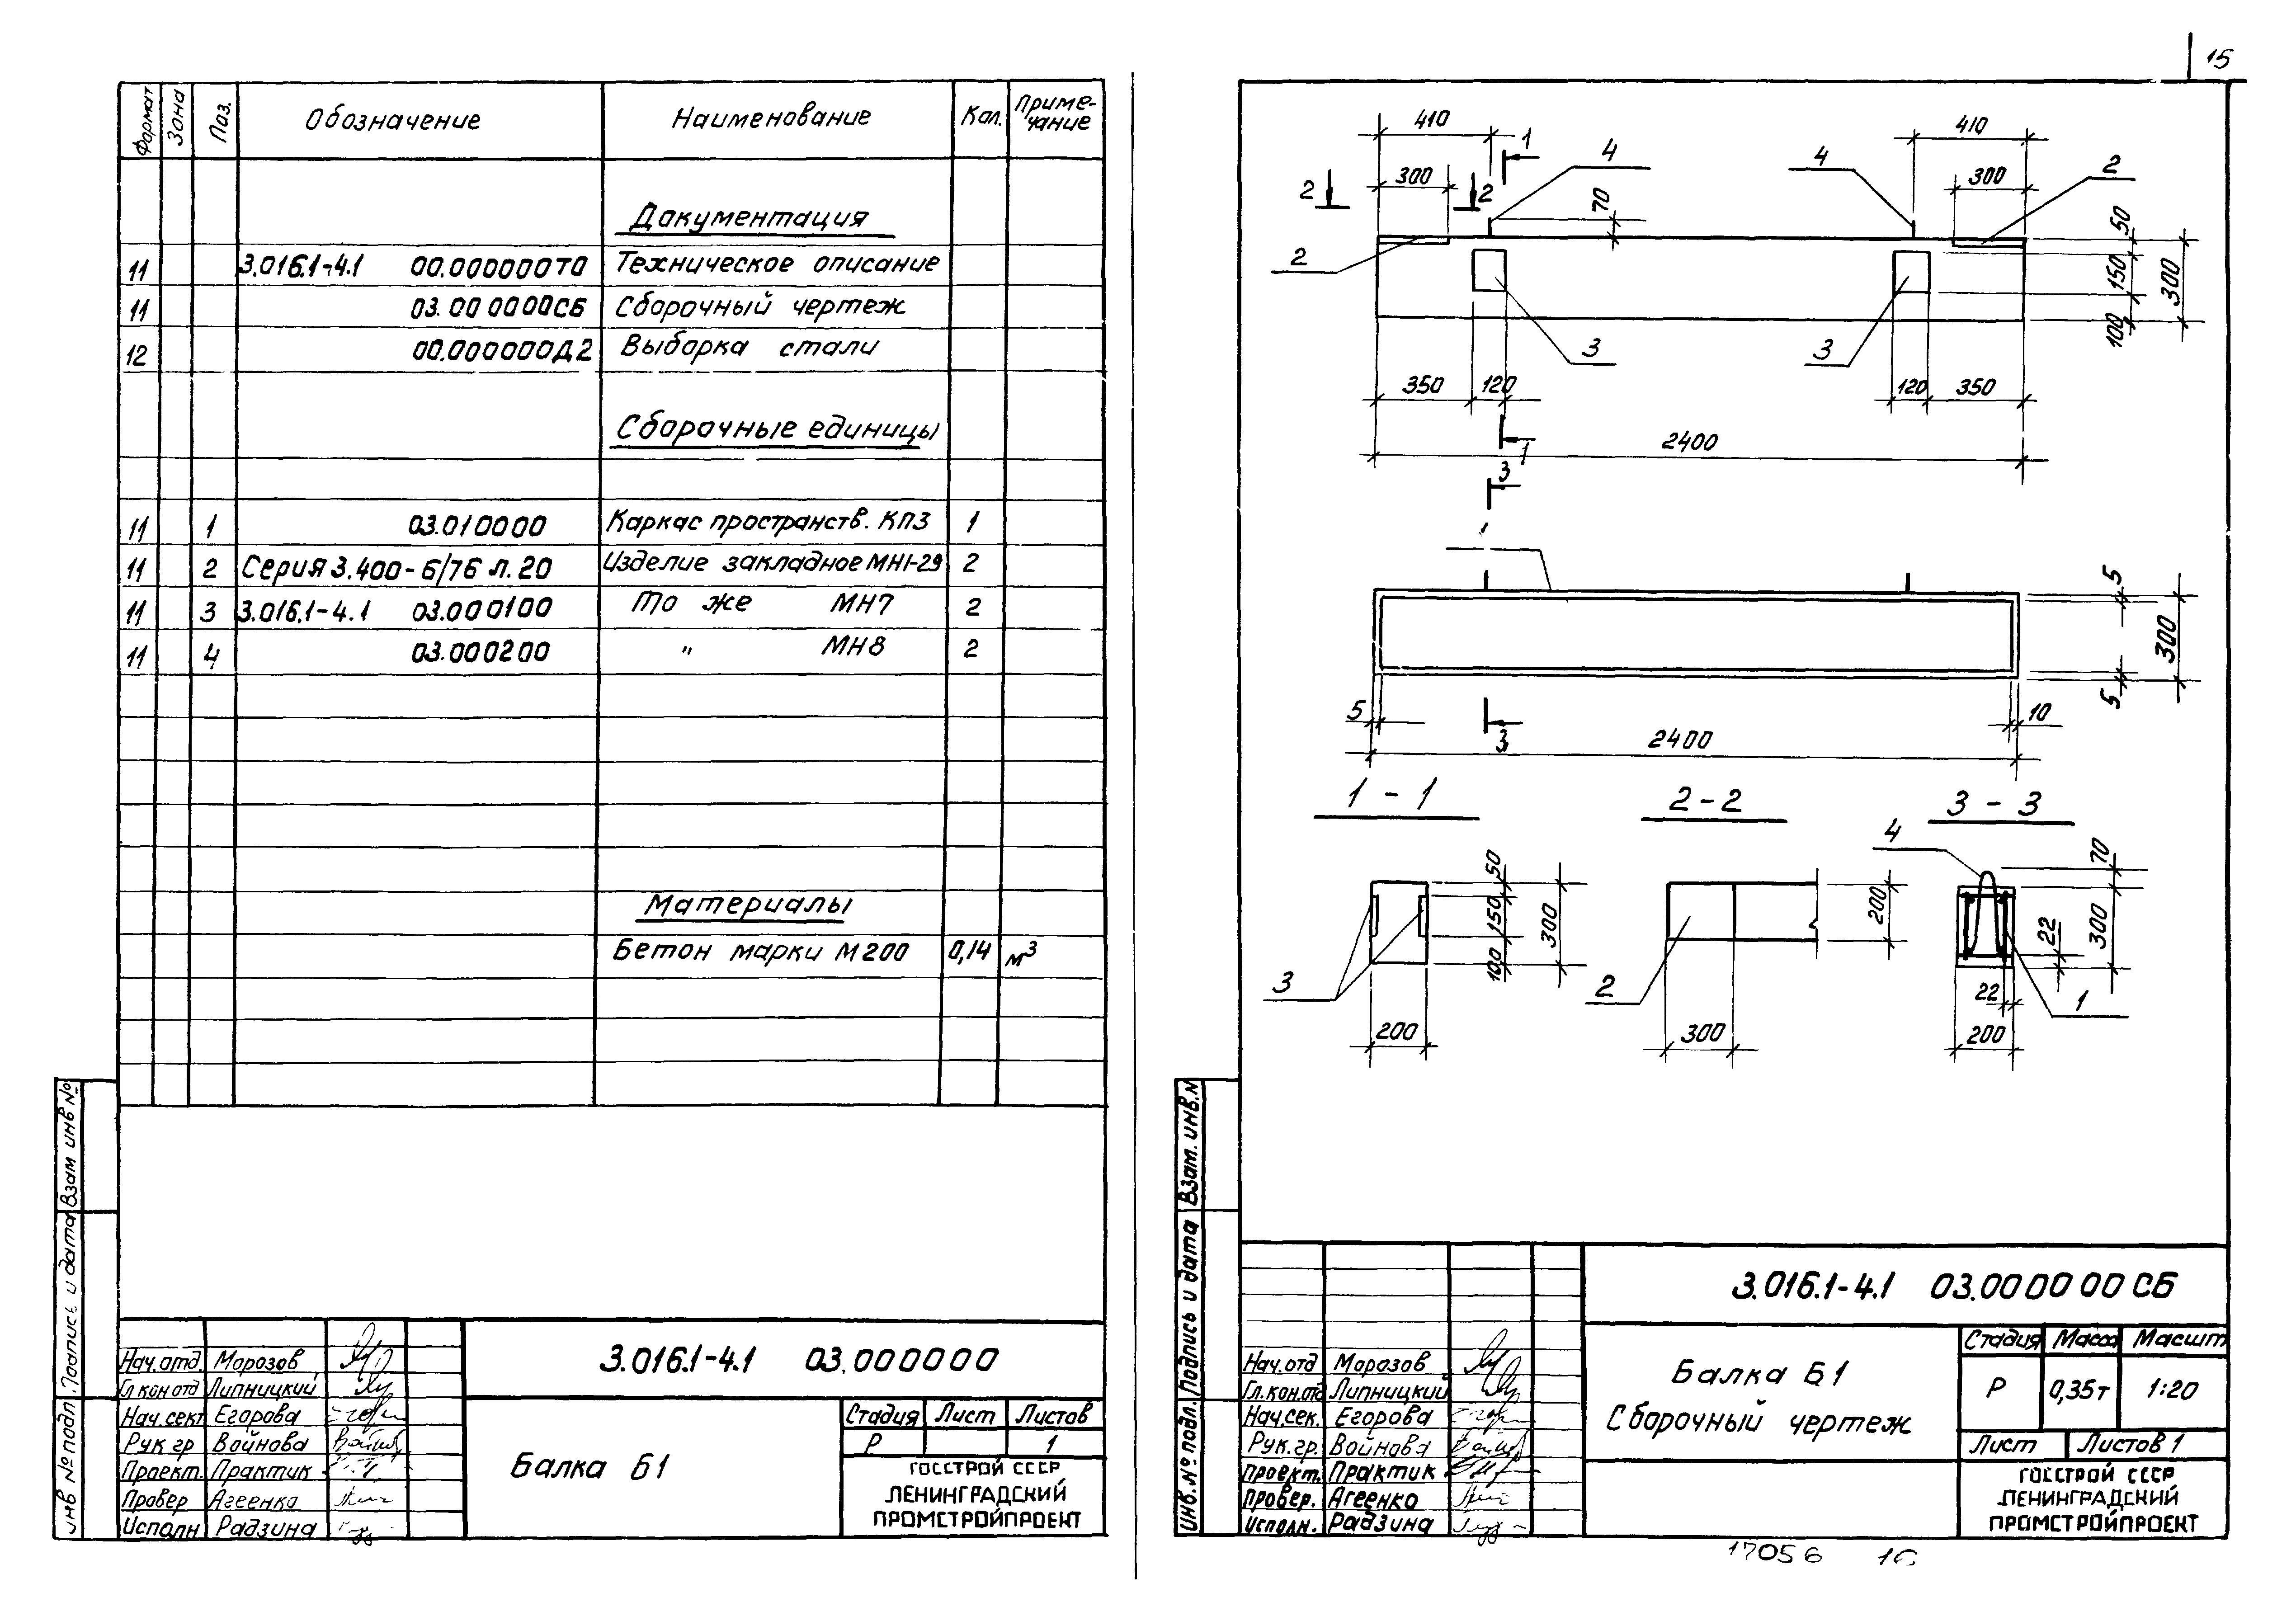 15
Формат Зона Поз. Обозначение Наименование Кол. Приме-
чание
Документация
11 3.016.1-4.1 00.000000ТО Техническое описание
11 03.000000СБ Сборочный чертеж
12 00.000000Д2 Выборка стали
Сборочные единицы
11 1 03.010000 Каркас пространств. КП3 1
11 2 Серия 3.400-6/76 л.20 Изделие закладное МН1-29 2
11 3 3.016.1-4.1 03.000100 То же МН7 2
11 4 03.000200 " МН8 2
Материалы
Бетон марки М200 0,14 м3
Инв № подл. Подпись и дата Взам инв №
Нач.отд. Морозов
Гл кон отд Липницкий
Нач.сект Егорова
Рук гр Войнова
Проект. Практик
Провер Агеенко
Исполн Радзина
3.016.1-4.1 03.000000
Балка Б1
Стадия Лист Листов
Р 1
ГОССТРОЙ СССР
ЛЕНИНГРАДСКИЙ
ПРОМСТРОЙПРОЕКТ
410 1 4 4 410
2 300 2 70 300 2
50
2
150 300
100
3 3
350 120 120 350
1
2400
3
5
300
5
5 10
3
2400
1 - 1 2-2 3 - 3
4
50 150 100 300
200
70
300
22
3 2 22 1
200 300 200
Инв.№ подл. Подпись и дата Взам. инв.N
3.016.1-4.1 03.000000СБ
Нач.отд Морозов
Гл.кон.отд Липницкий
Нач.сек. Егорова
Рук.гр. Войнова
Проект. Практик
Провер. Агеенко
Исполн. Радзина
Балка Б1
Сборочный чертеж
Стадия Масса Масшт
Р 0,35т 1:20
Лист Листов 1
ГОССТРОЙ СССР
ЛЕНИНГРАДСКИЙ
ПРОМСТРОЙПРОЕКТ
17056